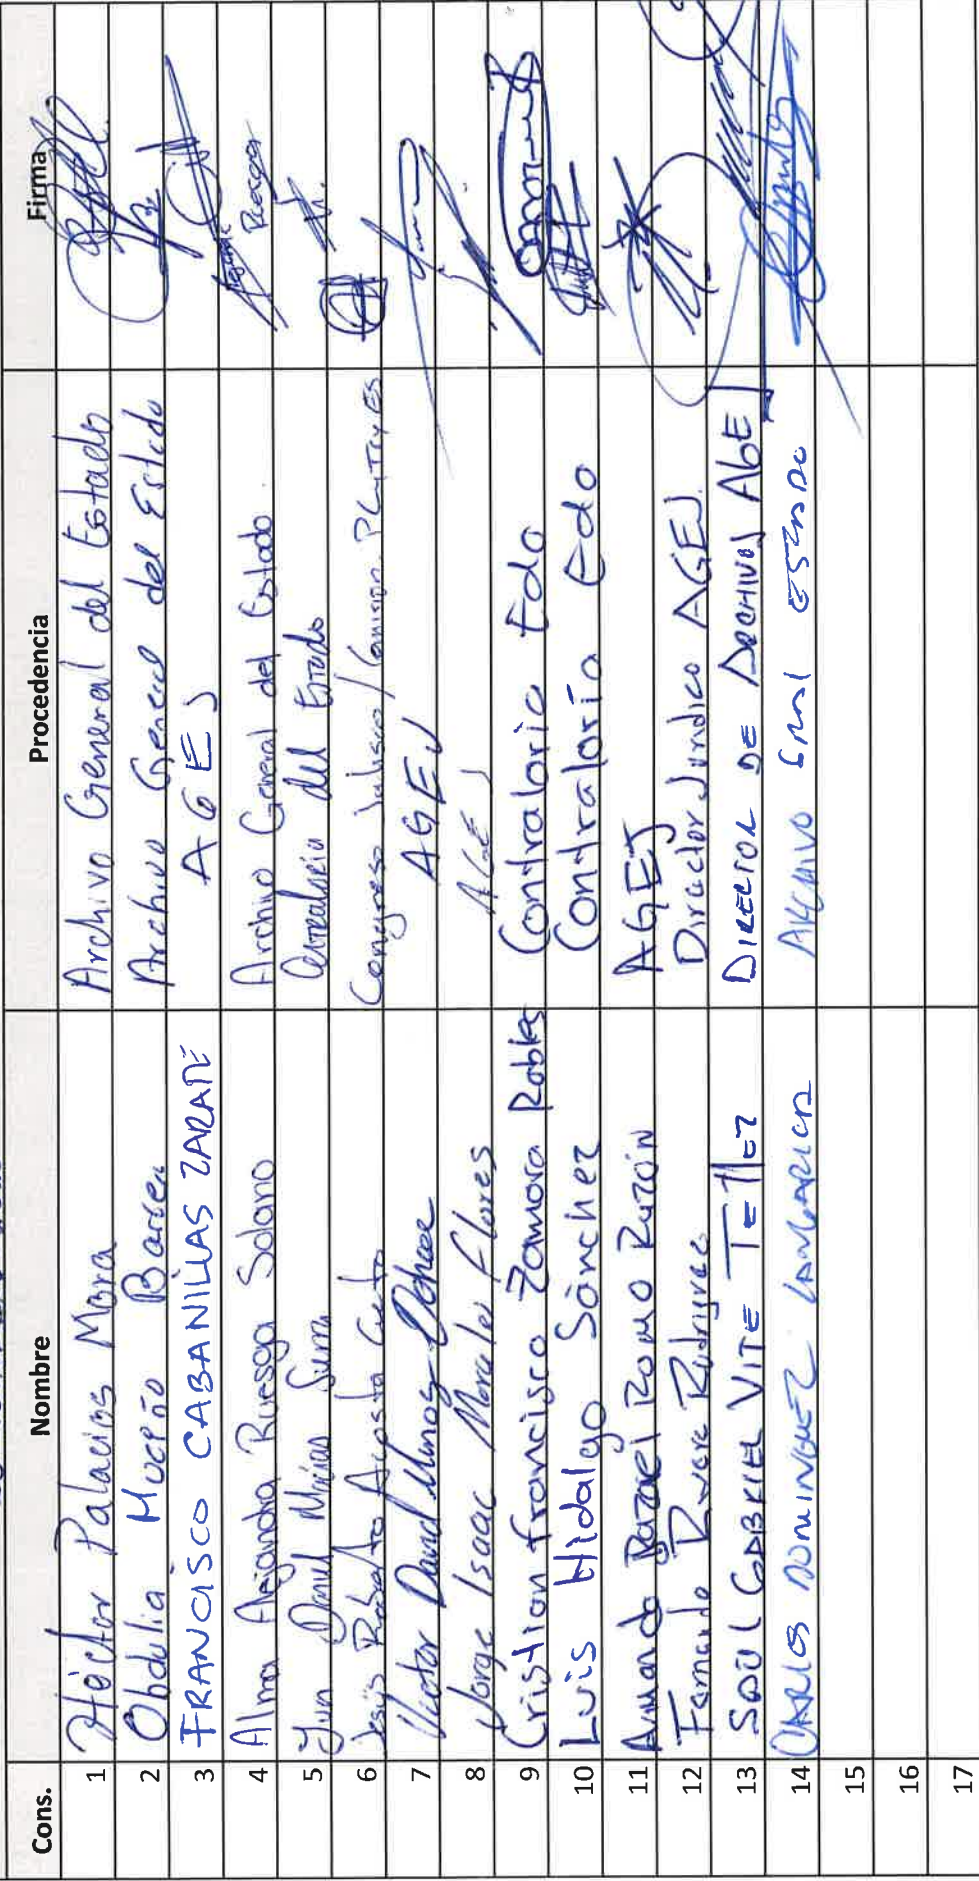 Cons. Nombre Procedencia Firma
1 Héctor Palacios Mora Archivo General del Estado
2 Obdulia Archivo General del Estado
3 FRANCISCO CABANILLAS ZARATE AGEJ
4 Alma Alejandra Ruesga Solano Archivo General del Estado
5 Juan David Macías Contraloría del Estado
6 Jesús Roberto Acosta Congreso Jalisco/
7 Victor David Munos AGEJ
8 Jorge Isaac Morales Flores AGEJ
9 Cristian Francisco Zamora Robles Contraloría Edo
10 Luis Hidalgo Sánchez Contraloría Edo
11 Armando Rafael Romo AGEJ
12 Fernando Rodríguez Director Jurídico AGEJ
13 SAÚL GABRIEL VITE TELLEZ DIRECTOR DE ARCHIVOS
14 CARLOS DOMINGUEZ ARCHIVO GRAL ESTADO
15
16
17